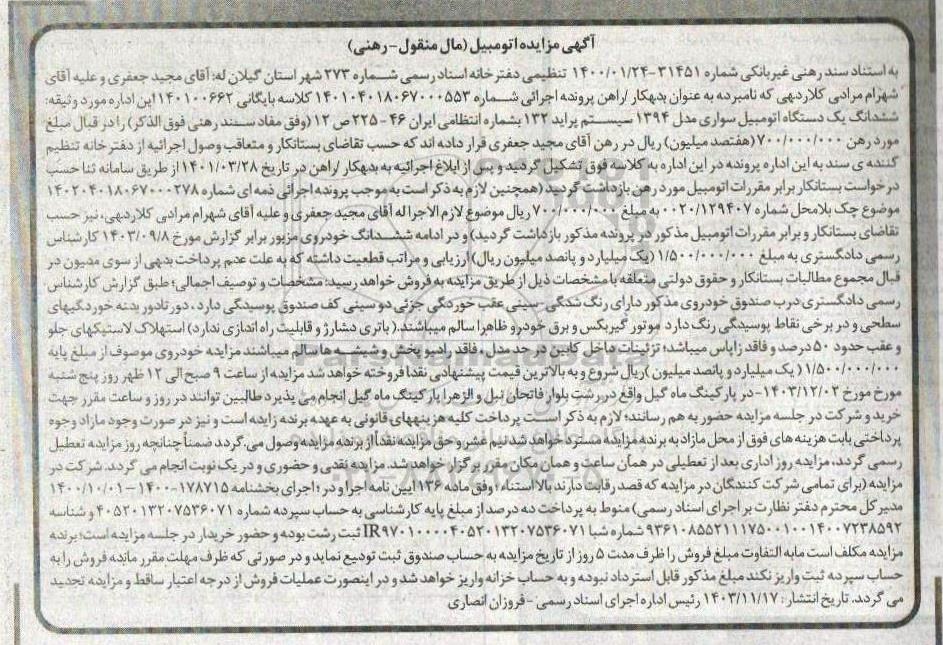 آگهی مزایده اتومبیل (مال منقول-رهنی)
به استناد سند رهنی غیربانکی شماره ۳۱۴۵۱-۱۴۰۰/۰۱/۲۴ تنظیمی دفترخانه اسناد رسمی شماره ۲۷۳ شهر استان گیلان له: آقای مجید جعفری و علیه آقای
شهرام مرادی کلاردهی که نامبرده به عنوان بدهکار /راهن پرونده اجرائی شماره ۱۴۰۱۰۴۰۱۸۰۶۷۰۰۰۵۵۳ کلاسه بایگانی ۱۴۰۱۰۰۶۶۲ این اداره مورد وثیقه:
ششدانگ یک دستگاه اتومبیل سواری مدل ۱۳۹۴ سیستم پراید ۱۳۲ بشماره انتظامی ایران ۴۶-۲۲۵ ص ۱۲ (وفق مفاد سند رهنی فوق الذکر) را در قبال مبلغ
مورد رهن ۷۰۰/۰۰۰/۰۰۰ (هفتصد میلیون) ریال در رهن آقای مجید جعفری قرار داده اند که حسب تقاضای بستانکار و متعاقب وصول اجرائیه از دفترخانه تنظیم
کننده ی سند به این اداره پرونده در این اداره به کلاسه فوق تشکیل گردید و پس از ابلاغ اجرائیه به بدهکار /راهن در تاریخ ۱۴۰۱/۰۳/۲۸ از طریق سامانه ثنا حسب
درخواست بستانکار برابر مقررات اتومبیل مورد رهن بازداشت گردید (همچنین لازم به ذکر است به موجب پرونده اجرائی ذمه ای شماره ۱۴۰۲۰۴۰۱۸۰۶۷۰۰۰۲۷۸
موضوع چک بلامحل شماره ۰۰۲۰/۱۲۹۴۰۷ به مبلغ ۷۰۰/۰۰۰/۰۰۰ ریال موضوع لازم الاجرا له آقای مجید جعفری و علیه آقای شهرام مرادی کلاردهی، نیز حسب
تقاضای بستانکار و برابر مقررات اتومبیل مذکور در پرونده مذکور بازداشت گردید) و در ادامه ششدانگ خودروی مزبور برابر گزارش مورخ ۱۴۰۳/۰۹/۸ کارشناس
رسمی دادگستری به مبلغ ۱/۵۰۰/۰۰۰/۰۰۰ (یک میلیارد و پانصد میلیون ریال) ارزیابی و مراتب قطعیت داشته که به علت عدم پرداخت بدهی از سوی مدیون در
قبال مجموع مطالبات بستانکار و حقوق دولتی متعلقه با مشخصات ذیل از طریق مزایده به فروش خواهد رسید: مشخصات و توصیف اجمالی؛ طبق گزارش کارشناس
رسمی دادگستری درب صندوق خودروی مذکور دارای رنگ شدگی-سینی عقب خوردگی جزئی دو سینی کف صندوق پوسیدگی دارد، دور تا دور بدنه خوردگیهای
سطحی و در برخی نقاط پوسیدگی رنگ دارد موتور گیربکس و برق خودرو ظاهرا سالم میباشند.( باتری دشارژ و قابلیت راه اندازی ندارد) استهلاک لاستیکهای جلو
و عقب حدود ۵۰ درصد و فاقد زاپاس میباشد؛ تزئینات داخل کابین در حد مدل، فاقد رادیو پخش و شیشه ها سالم میباشند مزایده خودروی موصوف از مبلغ پایه
۱/۵۰۰/۰۰۰/۰۰۰ ( یک میلیارد و پانصد میلیون )ریال شروع و به بالاترین قیمت پیشنهادی نقدا فروخته خواهد شد مزایده از ساعت ۹ صبح الی ۱۲ ظهر روز پنج شنبه
مورخ مورخ ۱۴۰۳/۱۲/۰۲- در پارکینگ ماه گیل واقع در رشت بلوار فاتحان نبل و الزهرا پارکینگ ماه گیل انجام می پذیرد طالبین توانند در روز و ساعت مقرر جهت
خرید و شرکت در جلسه مزایده حضور به هم رسانند؛ لازم به ذکر است پرداخت کلیه هزینههای قانونی به عهده برنده زایده است و نیز در صورت وجود مازاد وجوه
پرداختی بابت هزینه های فوق از محل مازاد به برنده مزایده مسترد خواهد شد نیم عشر و حق مزایده نقدا از برنده مزایده وصول می گردد ضمناً چنانچه روز مزایده تعطیل
رسمی گردد، مزایده روز اداری بعد از تعطیلی در همان ساعت و همان مکان مقرر برگزار خواهد شد. مزایده نقدی و حضوری و در یک نوبت انجام می گردد. شرکت در
مزایده (برای تمامی شرکت کنندگان در مزایده که قصد رقابت دارند بالا استناد، وفق ماده ۱۳۶ آیین نامه اجرا و در ؛ اجرای بخشنامه ۱۷۸۷۱۵-۱۴۰۰-۱۴۰۰/۱۰/۰۱
مدیر کل محترم دفتر نظارت بر اجرای اسناد رسمی) منوط به پرداخت ده درصد از مبلغ پایه کارشناسی به حساب سپرده شماره ۴۰۵۲۰۱۳۲۰۷۵۳۶۰۷۱ و شناسه
۹۳۶۱۰۸۵۵۲۱۱۱۷۵۰۰۱۰۰۱۴۰۰۷۲۳۸۵۹۲ شماره شبا IR۹۷۰۱۰۰۰۰۴۰۵۲۰۱۳۲۰۷۵۳۶۰۷۱ ثبت رشت بوده و حضور خریدار در جلسه مزایده است؛ برنده
مزایده مکلف است مابه التفاوت مبلغ فروش را ظرف مدت ۵ روز از تاریخ مزایده به حساب صندوق ثبت تودیع نماید و در صورتی که ظرف مهلت مقرر مانده فروش را به
حساب سپرده ثبت واریز نکند مبلغ مذکور قابل استرداد نبوده و به حساب خزانه واریز خواهد شد و در اینصورت عملیات فروش از درجه اعتبار ساقط و مزایده تجدید
می گردد. تاریخ انتشار: ۱۴۰۳/۱۱/۱۷ رئیس اداره اجرای اسناد رسمی -فروزان انصاری